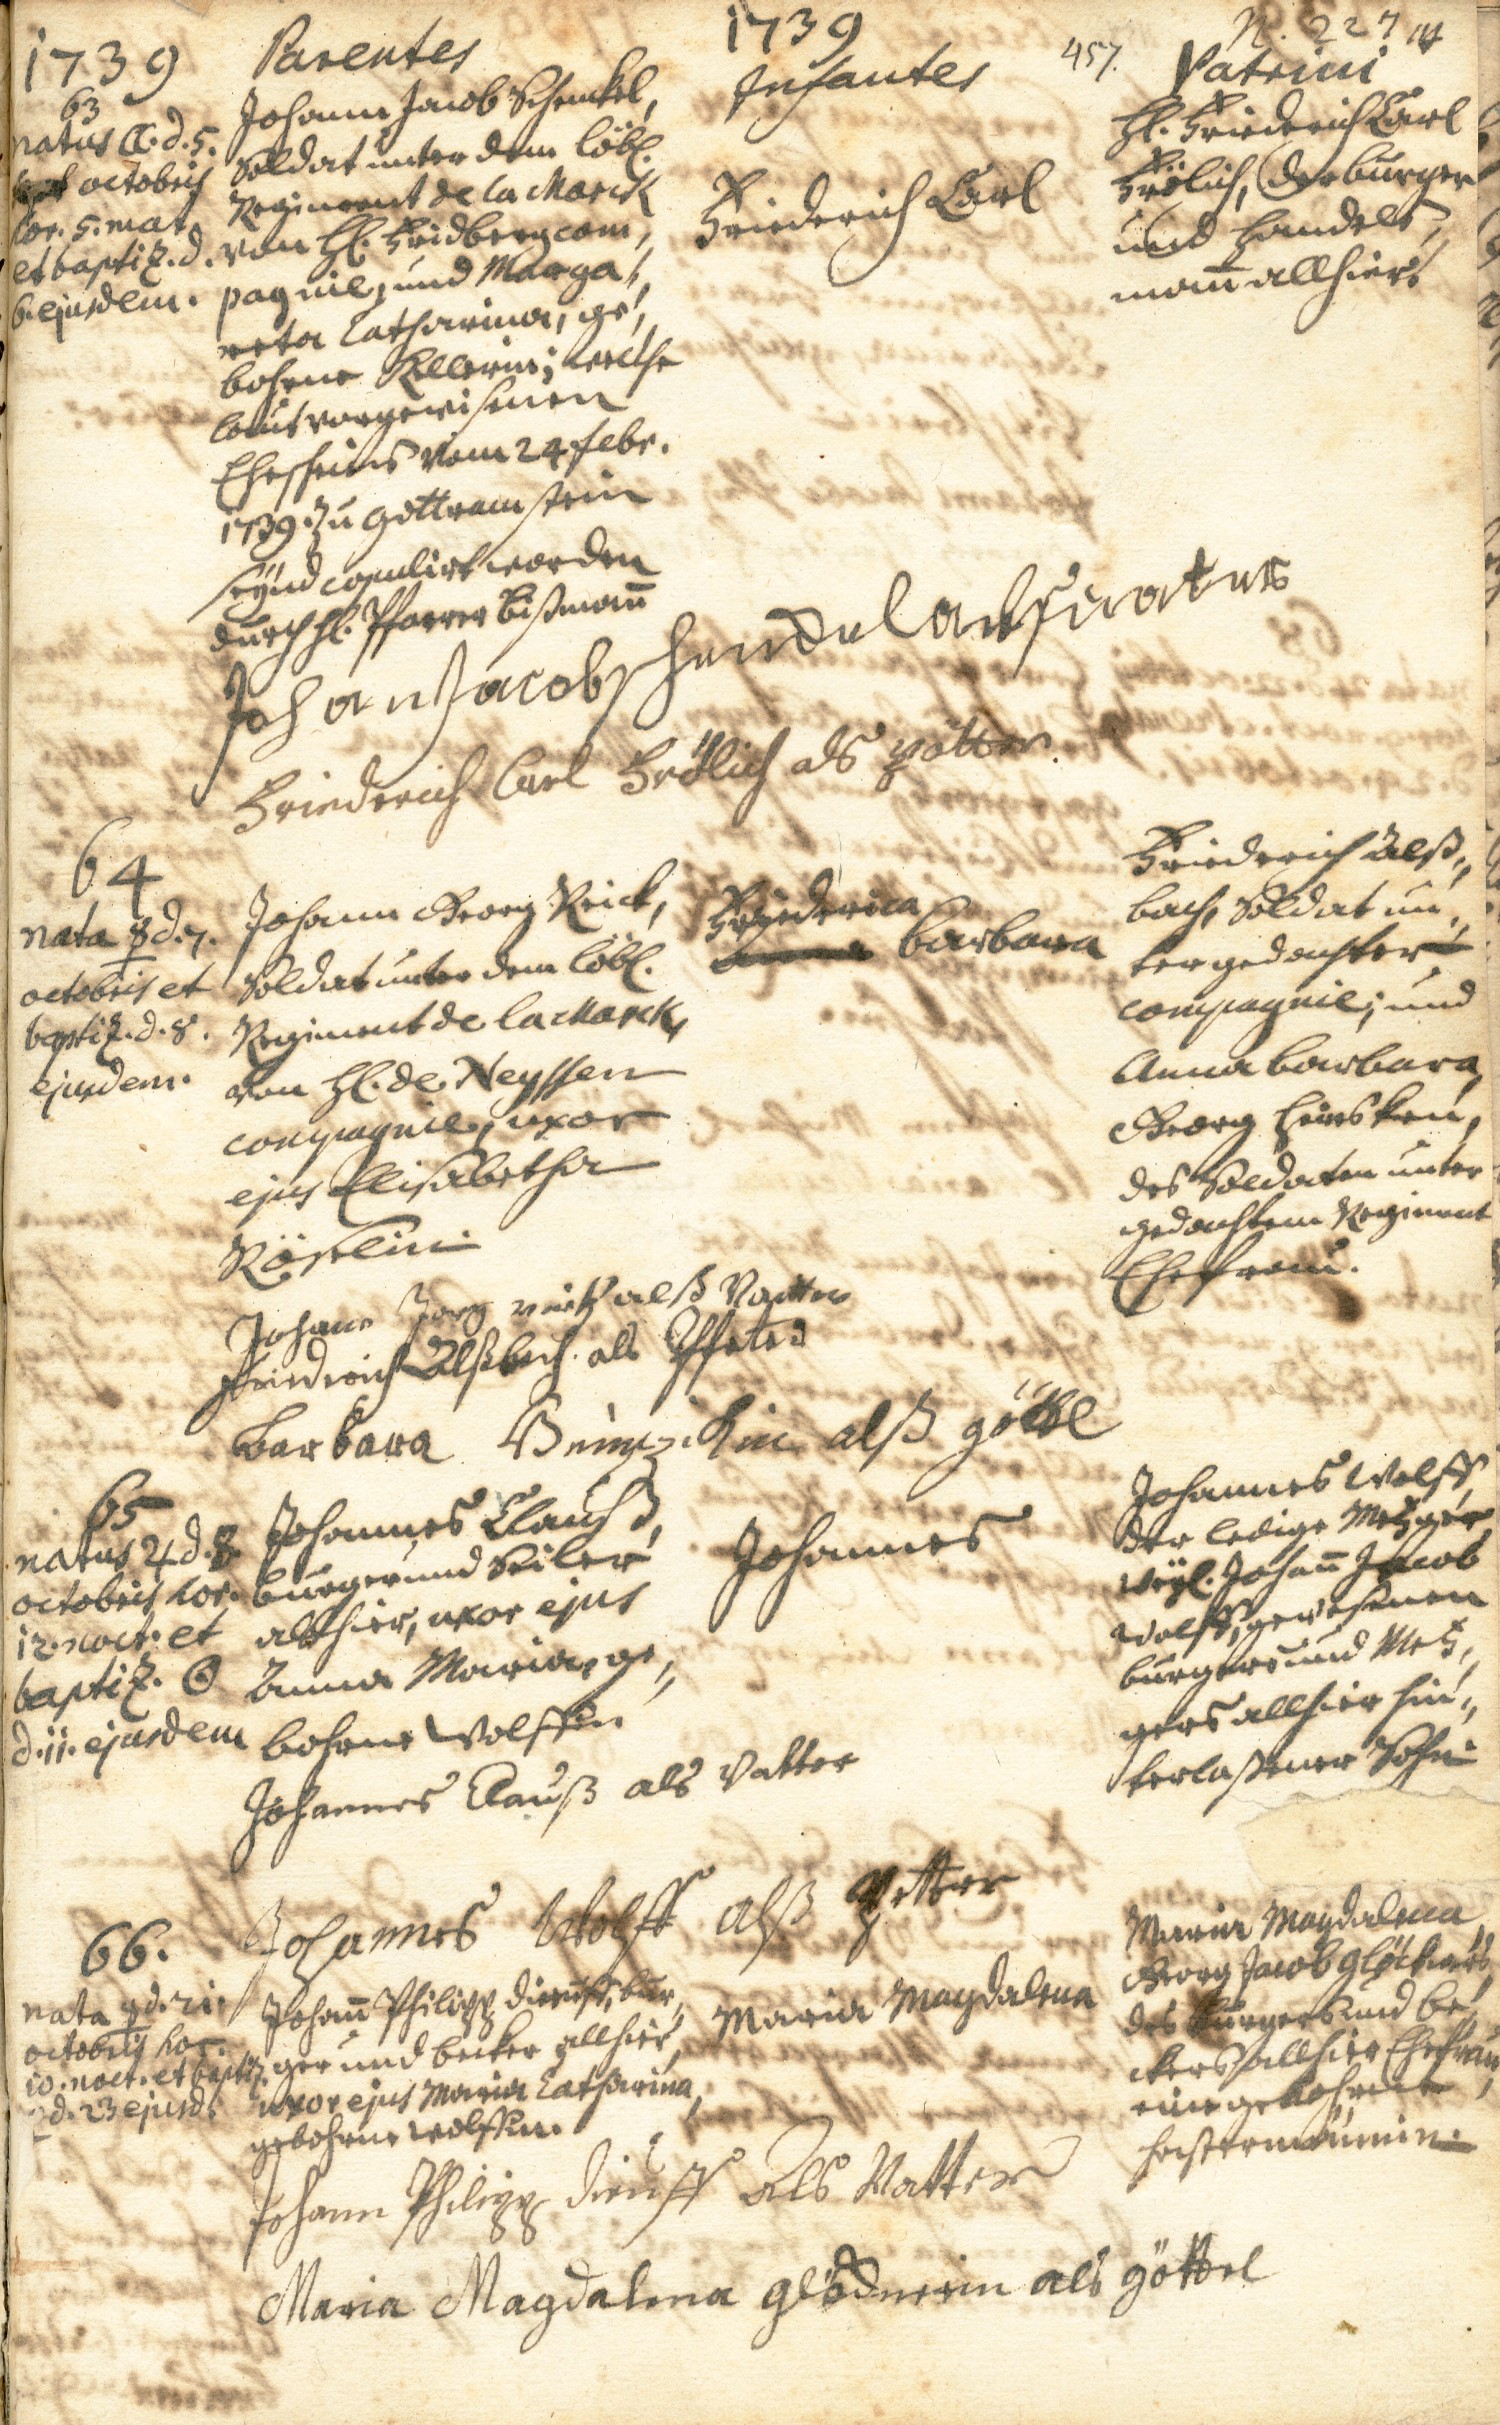 1739 Parentes 1739 Infantes 457. N. 227 Patrini
63
natus ☾. d. 5.
octobris
hor. 5. mat.
et baptiz. d.
6. ejusdem.
Johann Jacob Schenckel,
Soldat unter dem löbl.
Regiment de la Marck
von H. Fridberg com,,
pagnie, und Marga,,
reta Catharina, ge,,
bohrne Kellerin; welche
laut vorgewisenen
Ehescheins vom 24. febr.
1739. zu Gottramstein
seynd copulirt worden
durch H. Pfarrer Bißmañ
Friederich Carl
H. Friederich Carl
Frölich, der burger
und handels,,
mañ allhier.
Johan Jacob schenckel als
Friederich Carl Frölich als pötter.
64
nata ♀ d. 7.
octobris et
baptiz. d. 8.
ejusdem.
Johann Georg Reick,
Soldat unter dem löbl.
Regiment de la Marck,
von H. de Neyssen
compagnie, uxor
ejus Elisabetha
Röslin.
Friederica
Barbara
Friederich Alß,,
bach, Soldat un,,
ter gedachter
compagnie; und
Anna Barbara,
Georg
des Soldaten unter
gedachtem Regiment
Ehefrau.
Johann Jorg als Vatter
Friedrich Alßbach als Pfetter
Barbara alß göttel
65
natus ♃ d. 8.
octobris hor.
12. noct. et
baptiz. ☉
d. 11. ejusdem
Johannes Clauß,
burger und Seiler
allhier, uxor ejus
Anna Maria, ge,,
bohrne Wolffin
Johannes
Johannes Wolff,
der ledige Metzger,
weyl. Johañ Jacob
Wolff, gewesenen
burgers und Metz,,
gers allhier hin,,
terlaßener Sohn.
Johannes Clauß als Vatter
Johannes Wolff alß Petter
66.
nata d. 21.
octobris hor.
10. noct. et baptiz.
d. 23 ejusd.
Johañ Philipp Dieuß, bur,,
ger und becker allhier,
uxor ejus Maria Catharina,
gebohrne Wolffin.
Maria Magdalena
Maria Magdalena,
Georg Jacob Glöckners,
des burgers und be,,
ckers allhier Ehefrau,
eine gebohrne
Hastermännin.
Johann Philipp Dieuß Als Vatter
Maria Magdalena glöcknerin als göttel